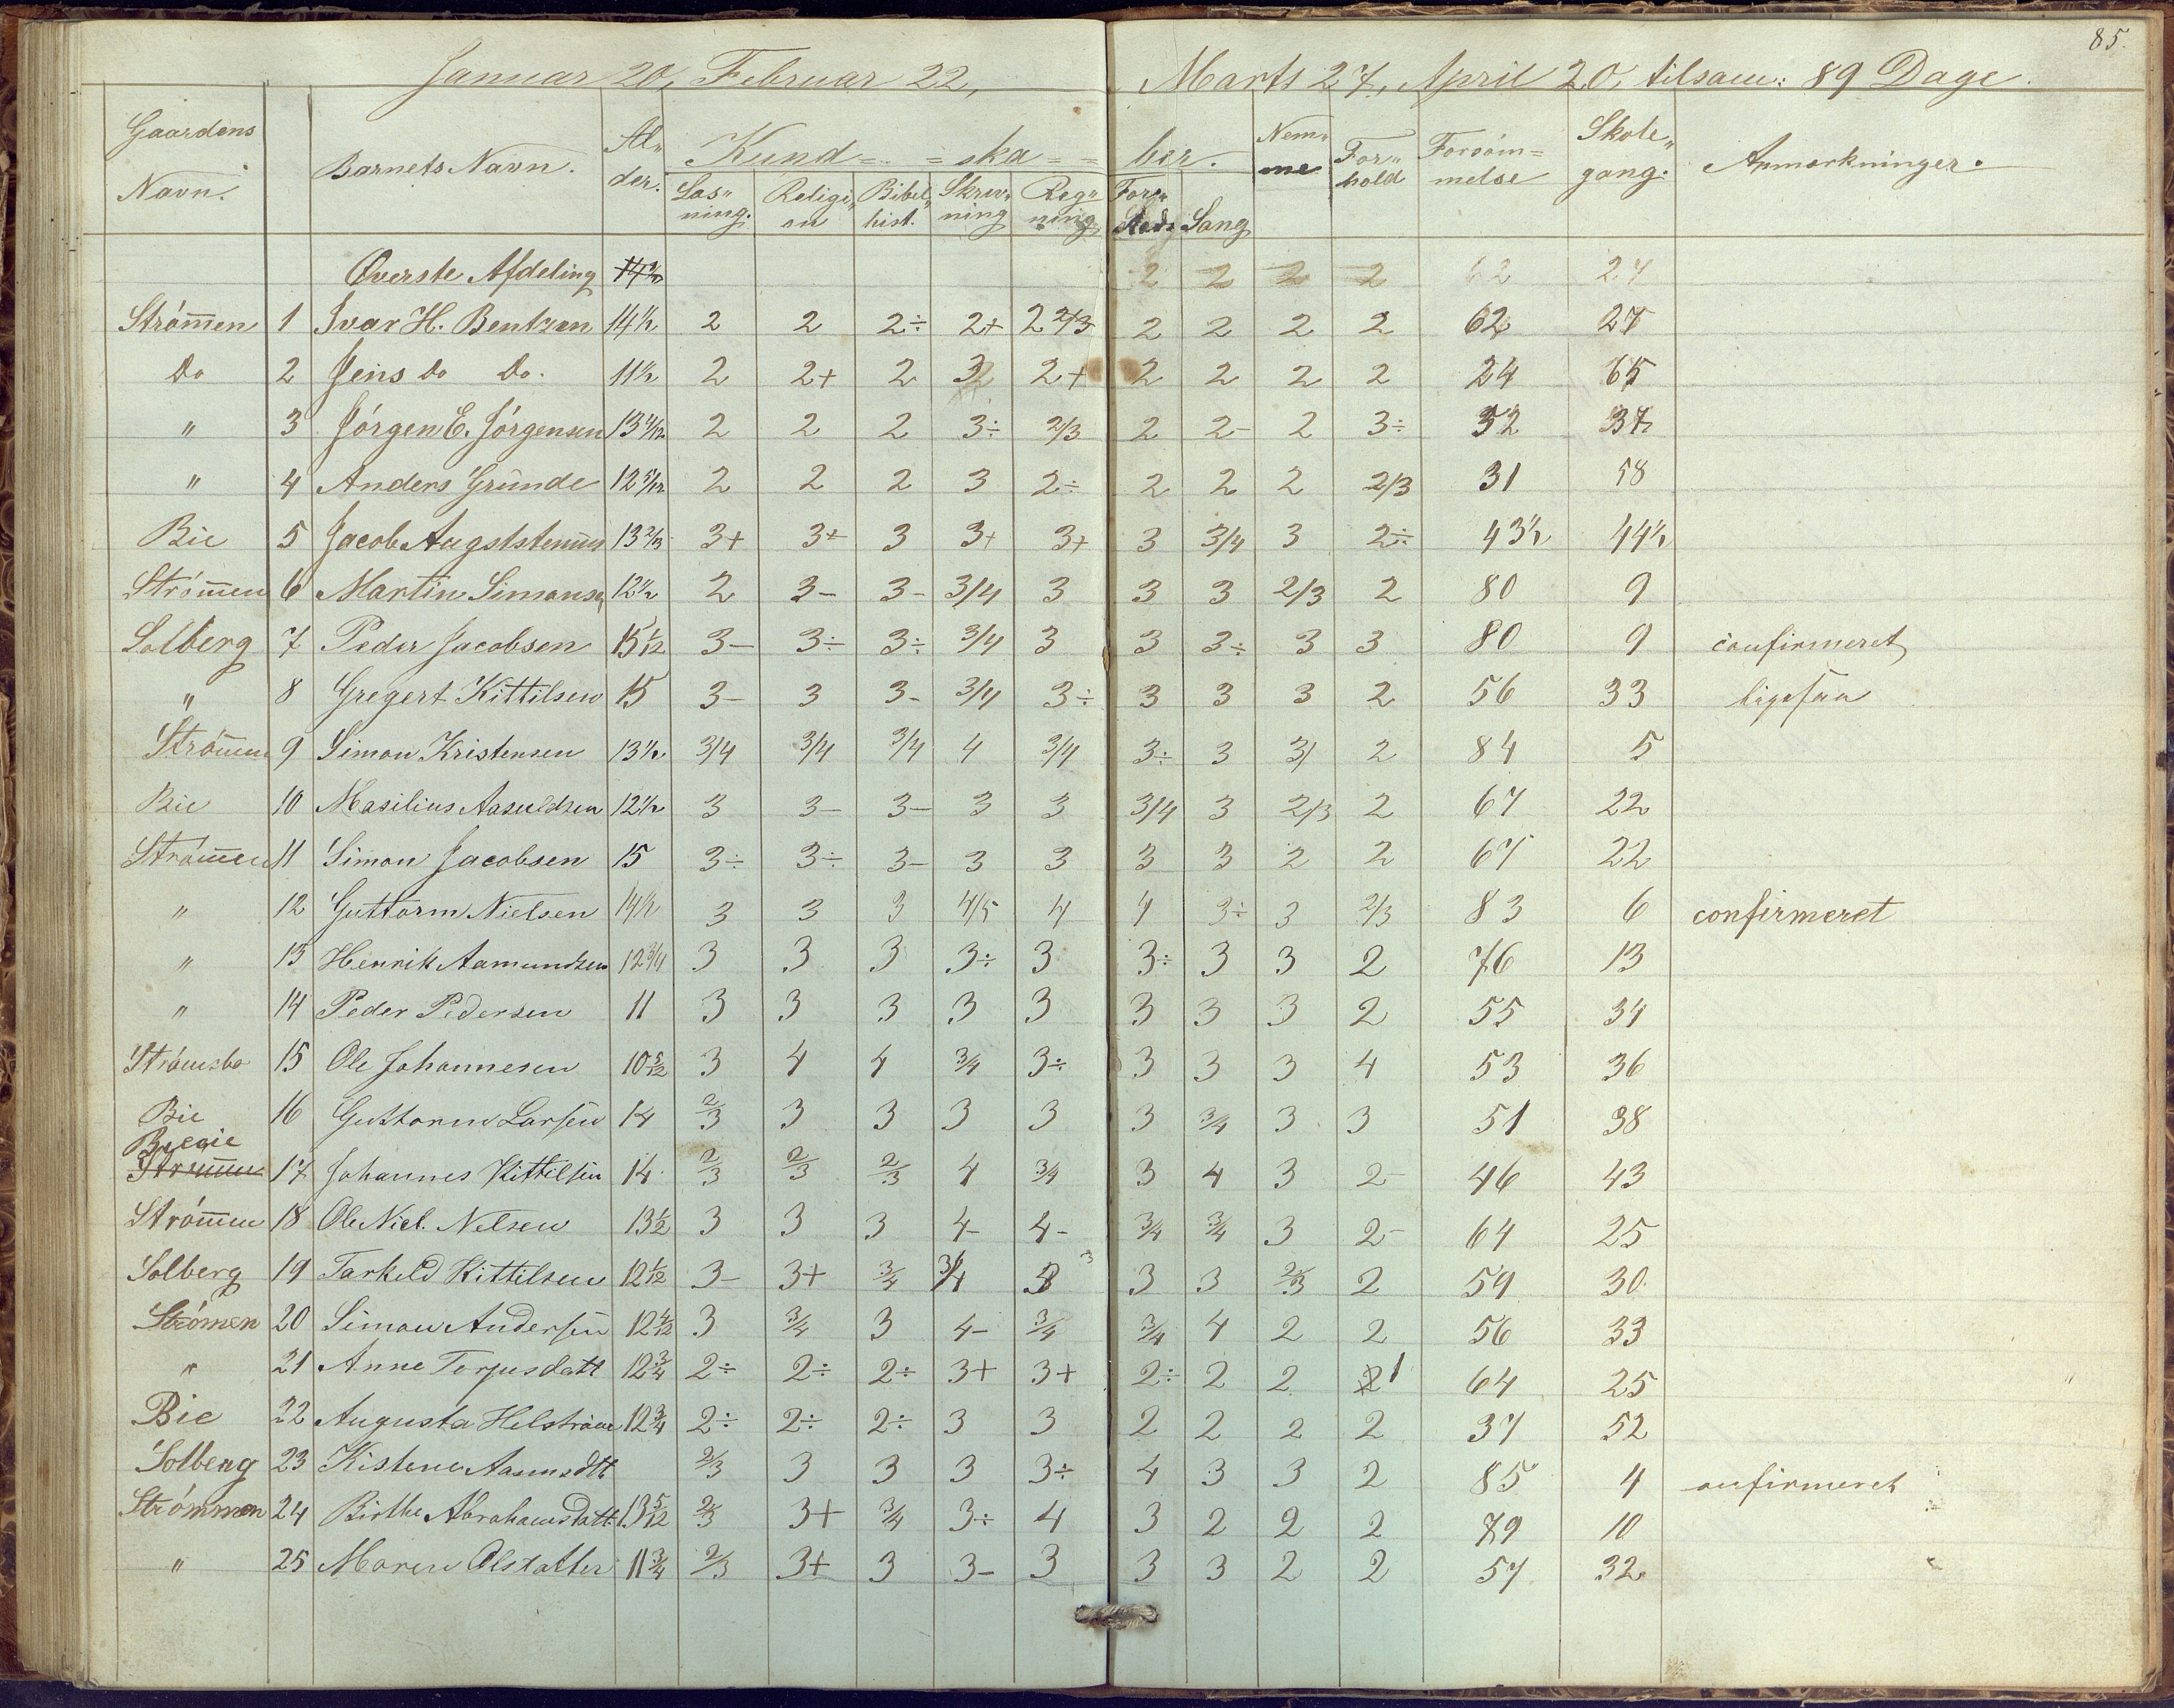 85.
Januar 20, Februar 22, Marts 27, April 20, tilsam: 89 Dage.
Gaardens Navn. Barnets Navn. Al„ der. Kund= =ska= =ber. Nem„ me For„ hold Forsøm= melse Skole„ gang. Anmærkninger.
Læs„ ning. Religi„ on Bibel„ hist. Skriv„ ning Reg„ ning Fors„ Sang
Øverste Afdeling 14½ 2 2 2 2 62 27
Strömen 1 Ivar H. Bentzen 14½ 2 2 2÷ 2+ 2 2/3 2 2 2 2 62 27
Do 2 Jens Do Do. 11½ 2 2+ 2 3 2+ 2 2 2 2 24 65
„ 3 Jörgen E. Jörgensen 13 2 2 2 3÷ 2/3 2 2- 2 3÷ 52 37
„ 4 Anders Grunde 12 2 2 2 3 2÷ 2 2 2 2/3 31 58
Bie 5 Jacob 13 3+ 3+ 3 3+ 3+ 3 3/4 3 2÷ 43½ 44½
Strömen 6 Martin Simonsen 12½ 2 3- 3- 3/4 3 3 3 2/3 2 80 9
Solberg 7 Peder Jacobsen 15 1/12 3- 3÷ 3÷ 3/4 3 3 3÷ 3 3 80 9 confirmeret
„ 8 Gregert Kittilsen 15 3- 3 3- 3/4 3÷ 3 3 3 2 56 33 ligesaa
Strömen 9 Simon Kristensen 13½ 3/4 3/4 3/4 4 3/4 3÷ 3 3/ 2 84 5
Bie 10 Masilius Aasuldsen 12½ 3 3- 3- 3 3 3/4 3 2/3 2 67 22
Strömen 11 Simon Jacobsen 15 3÷ 3÷ 3- 3 3 3 3 2 2 67 22
„ 12 Guttorm Nielsen 14½ 3 3 3 4/5 4 4 3÷ 3 2/3 83 6 confirmeret
„ 13 Henrik Aamundsen 12 3/4 3 3 3 3÷ 3 3÷ 3 3 2 76 13
„ 14 Peder Pedersen 11 3 3 3 3 3 3 3 3 2 55 34
Strömsbo 15 Ole Johannesen 10 5/12 3 4 4 3/4 3÷ 3 3 3 4 53 36
Bie 16 Guttorm Larsen 14 2/3 3 3 3 3 3 3/4 3 3 51 38
Strömen 17 Johannes Kittilsen 14 2/3 2/3 2/3 4 3/4 3 4 3 2- 46 43
Strömen 18 Ole Niel. Nelsen 13½ 3 3 3 4- 4- 3/4 3/4 3 2- 64 25
Solberg 19 Tarkeld Kittilsen 12 1/12 3- 3+ 3/4 3/4 3 3 3 3 2/3 2 59 30
Strömen 20 Simon Andersen 12 4/12 3 3/4 3 4- 3/4 3/4 4 2 2 56 33
„ 21 Anne Torjusdatt 12 3/4 2÷ 2÷ 2÷ 3+ 3+ 2÷ 2 2 2 1 64 25
Bie 22 Augusta Helström 12 3/4 2÷ 2÷ 2÷ 3 3 2 2 2 2 37 52
Solberg 23 Kistene Aasmsdtt 2/3 3 3 3 3÷ 4 3 3 2 85 4 onfirmeret
Strömmen 24 Birthe Abrahamsdatt. 13 5/12 2/3 3+ 3/4 3÷ 4 3 2 2 2 79 10
„ 25 Maren Olsdatter 11 3/4 2/3 3+ 3 3- 3 3 3 2 2 57 32